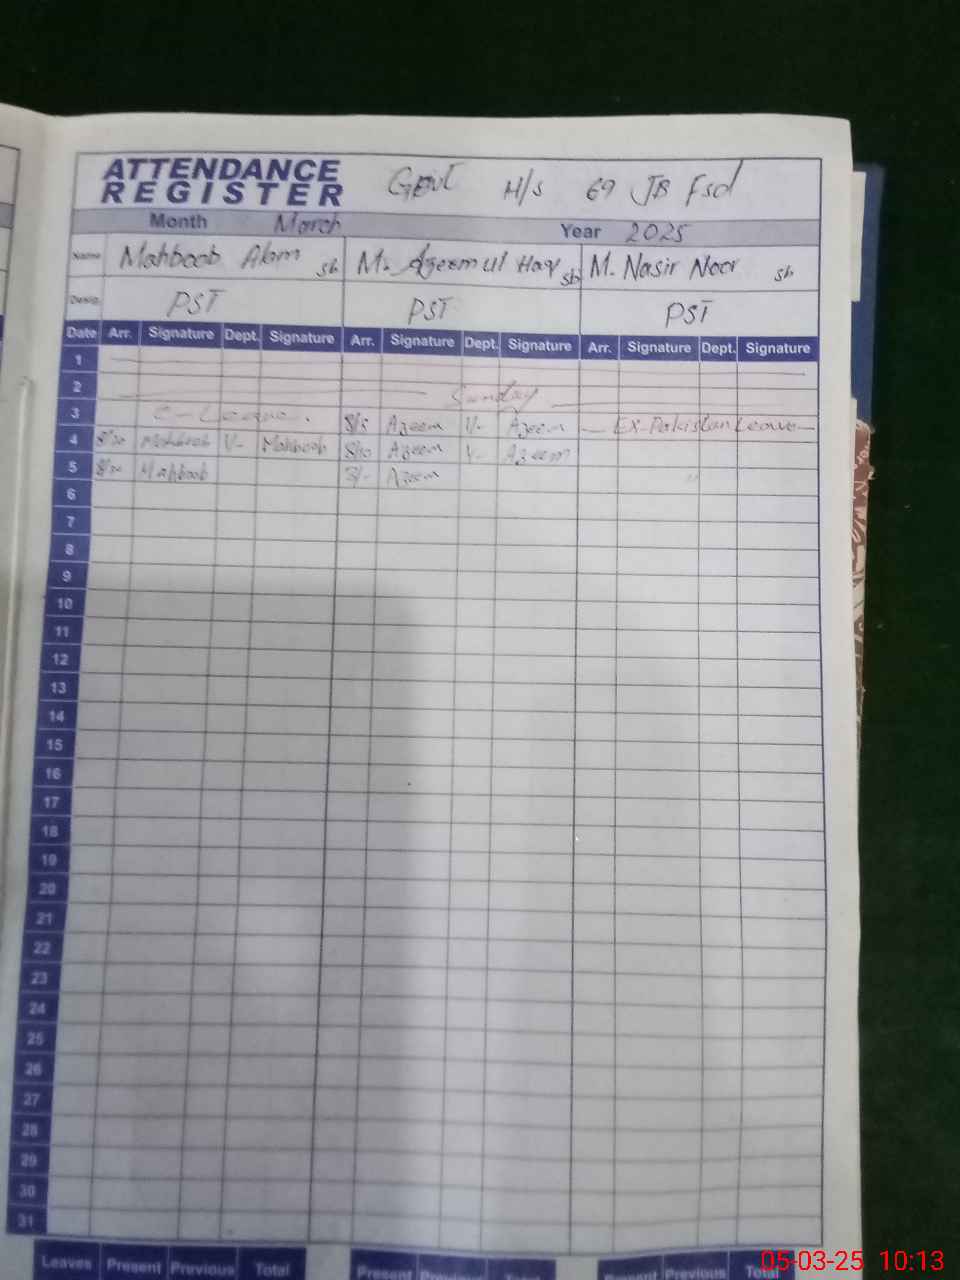 ATTENDANCE REGISTER Govt H/S 69 JB Fsd
Month March Year 2025
Name Mahboob Alam sb M. Azeem ul Haq sb M. Nasir Noor sb
Desig. PST PST PST
Date Arr. Signature Dept. Signature Arr. Signature Dept. Signature Arr. Signature Dept. Signature
1
2 Sunday
3 C-Leave. Azeem 1/- Azeem Ex-Pakistan Leave
4 Mahboob 1/- Mahboob 8/10 Azeem 1/- Azeem
5 Mahboob Azeem "
6
7
8
9
10
11
12
13
14
15
16
17
18
19
20
21
22
23
24
25
26
27
28
29
30
31
Leaves Present Previous Total Present Previous Total Present Previous Total
05-03-25 10:13